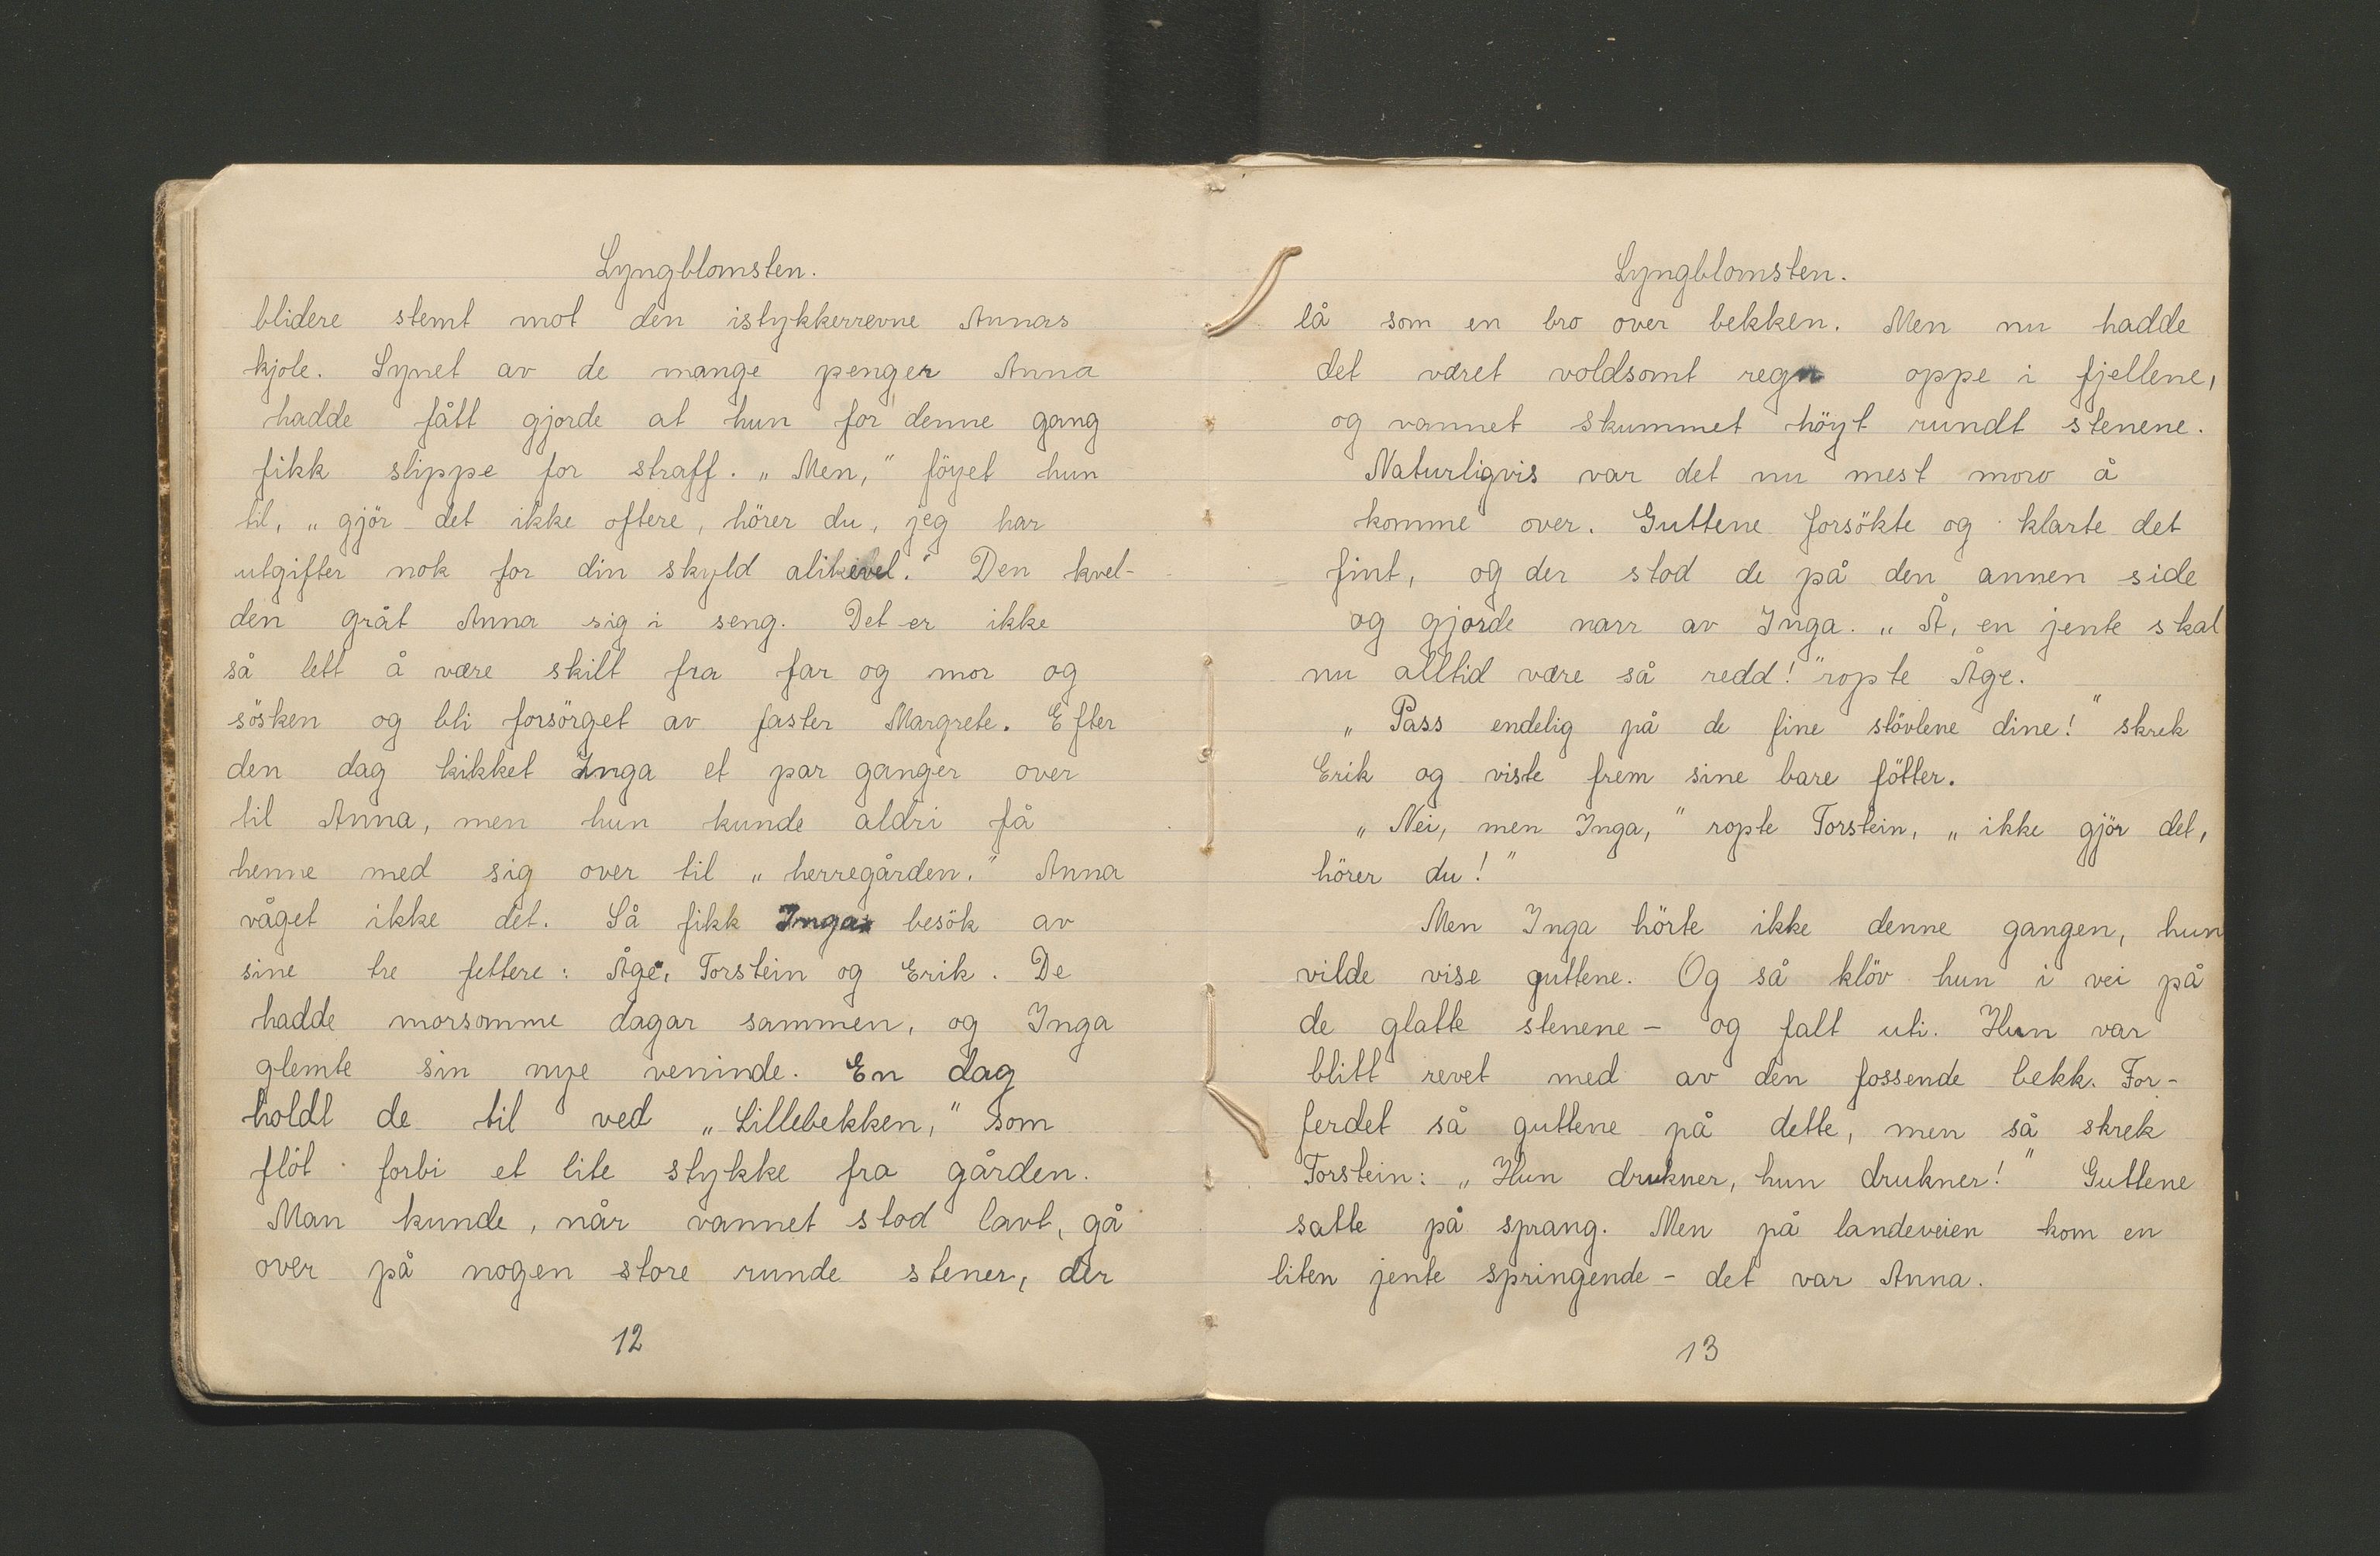 Lyngblomsten.
blidere stemt mot den istykkerrevne Annas
kjole. Synet av de mange penger Anna
hadde fått gjorde at hun for denne gang
fikk slippe for straff. „Men,“ föyet hun
til, „gjör det ikke oftere, hörer du, jeg har
utgifter nok for din skyld alikevel.“ Den kvel-
den gråt Anna sig i seng. Det er ikke
så lett å være skilt fra far og mor og
sösken og bli forsörget av faster Margrete. Efter
den dag kikket Inga et par ganger over
til Anna, men hun kunde aldri få
henne med sig over til „herregården.“ Anna
våget ikke det. Så fikk Inga besök av
sine tre fettere: Åge, Torstein og Erik. De
hadde morsomme dagar sammen, og Inga
glemte sin nye veninde. En dag
holdt de til ved „Lillebekken,“ som
flöt forbi et lite stykke fra gården.
Man kunde, når vannet stod lavt, gå
over på nogen store runde stener, der
12
Lyngblomsten.
lå som en bro over bekken. Men nu hadde
det været voldsomt regn oppe i fjellene,
og vannet skummet höyt rundt stenene.
Naturligvis var det nu mest moro å
komme over. Guttene forsökte og klarte det
fint, og der stod de på den annen side
og gjorde narr av Inga. „Å, en jente skal
nu alltid være så redd!“ ropte Åge.
„Pass endelig på de fine stövlene dine!“ skrek
Erik og viste frem sine bare fötter.
„Nei, men Inga,“ ropte Torstein, „ikke gjör det,
hörer du!“
Men Inga hörte ikke denne gangen, hun
vilde vise guttene. Og så klöv hun i vei på
de glatte stenene - og falt uti. Hun var
blitt revet med av den fossende bekk. For-
ferdet så guttene på dette, men så skrek
Torstein: „Hun drukner, hun drukner!“ Guttene
satte på sprang. Men på landeveien kom en
liten jente springende - det var Anna.
13